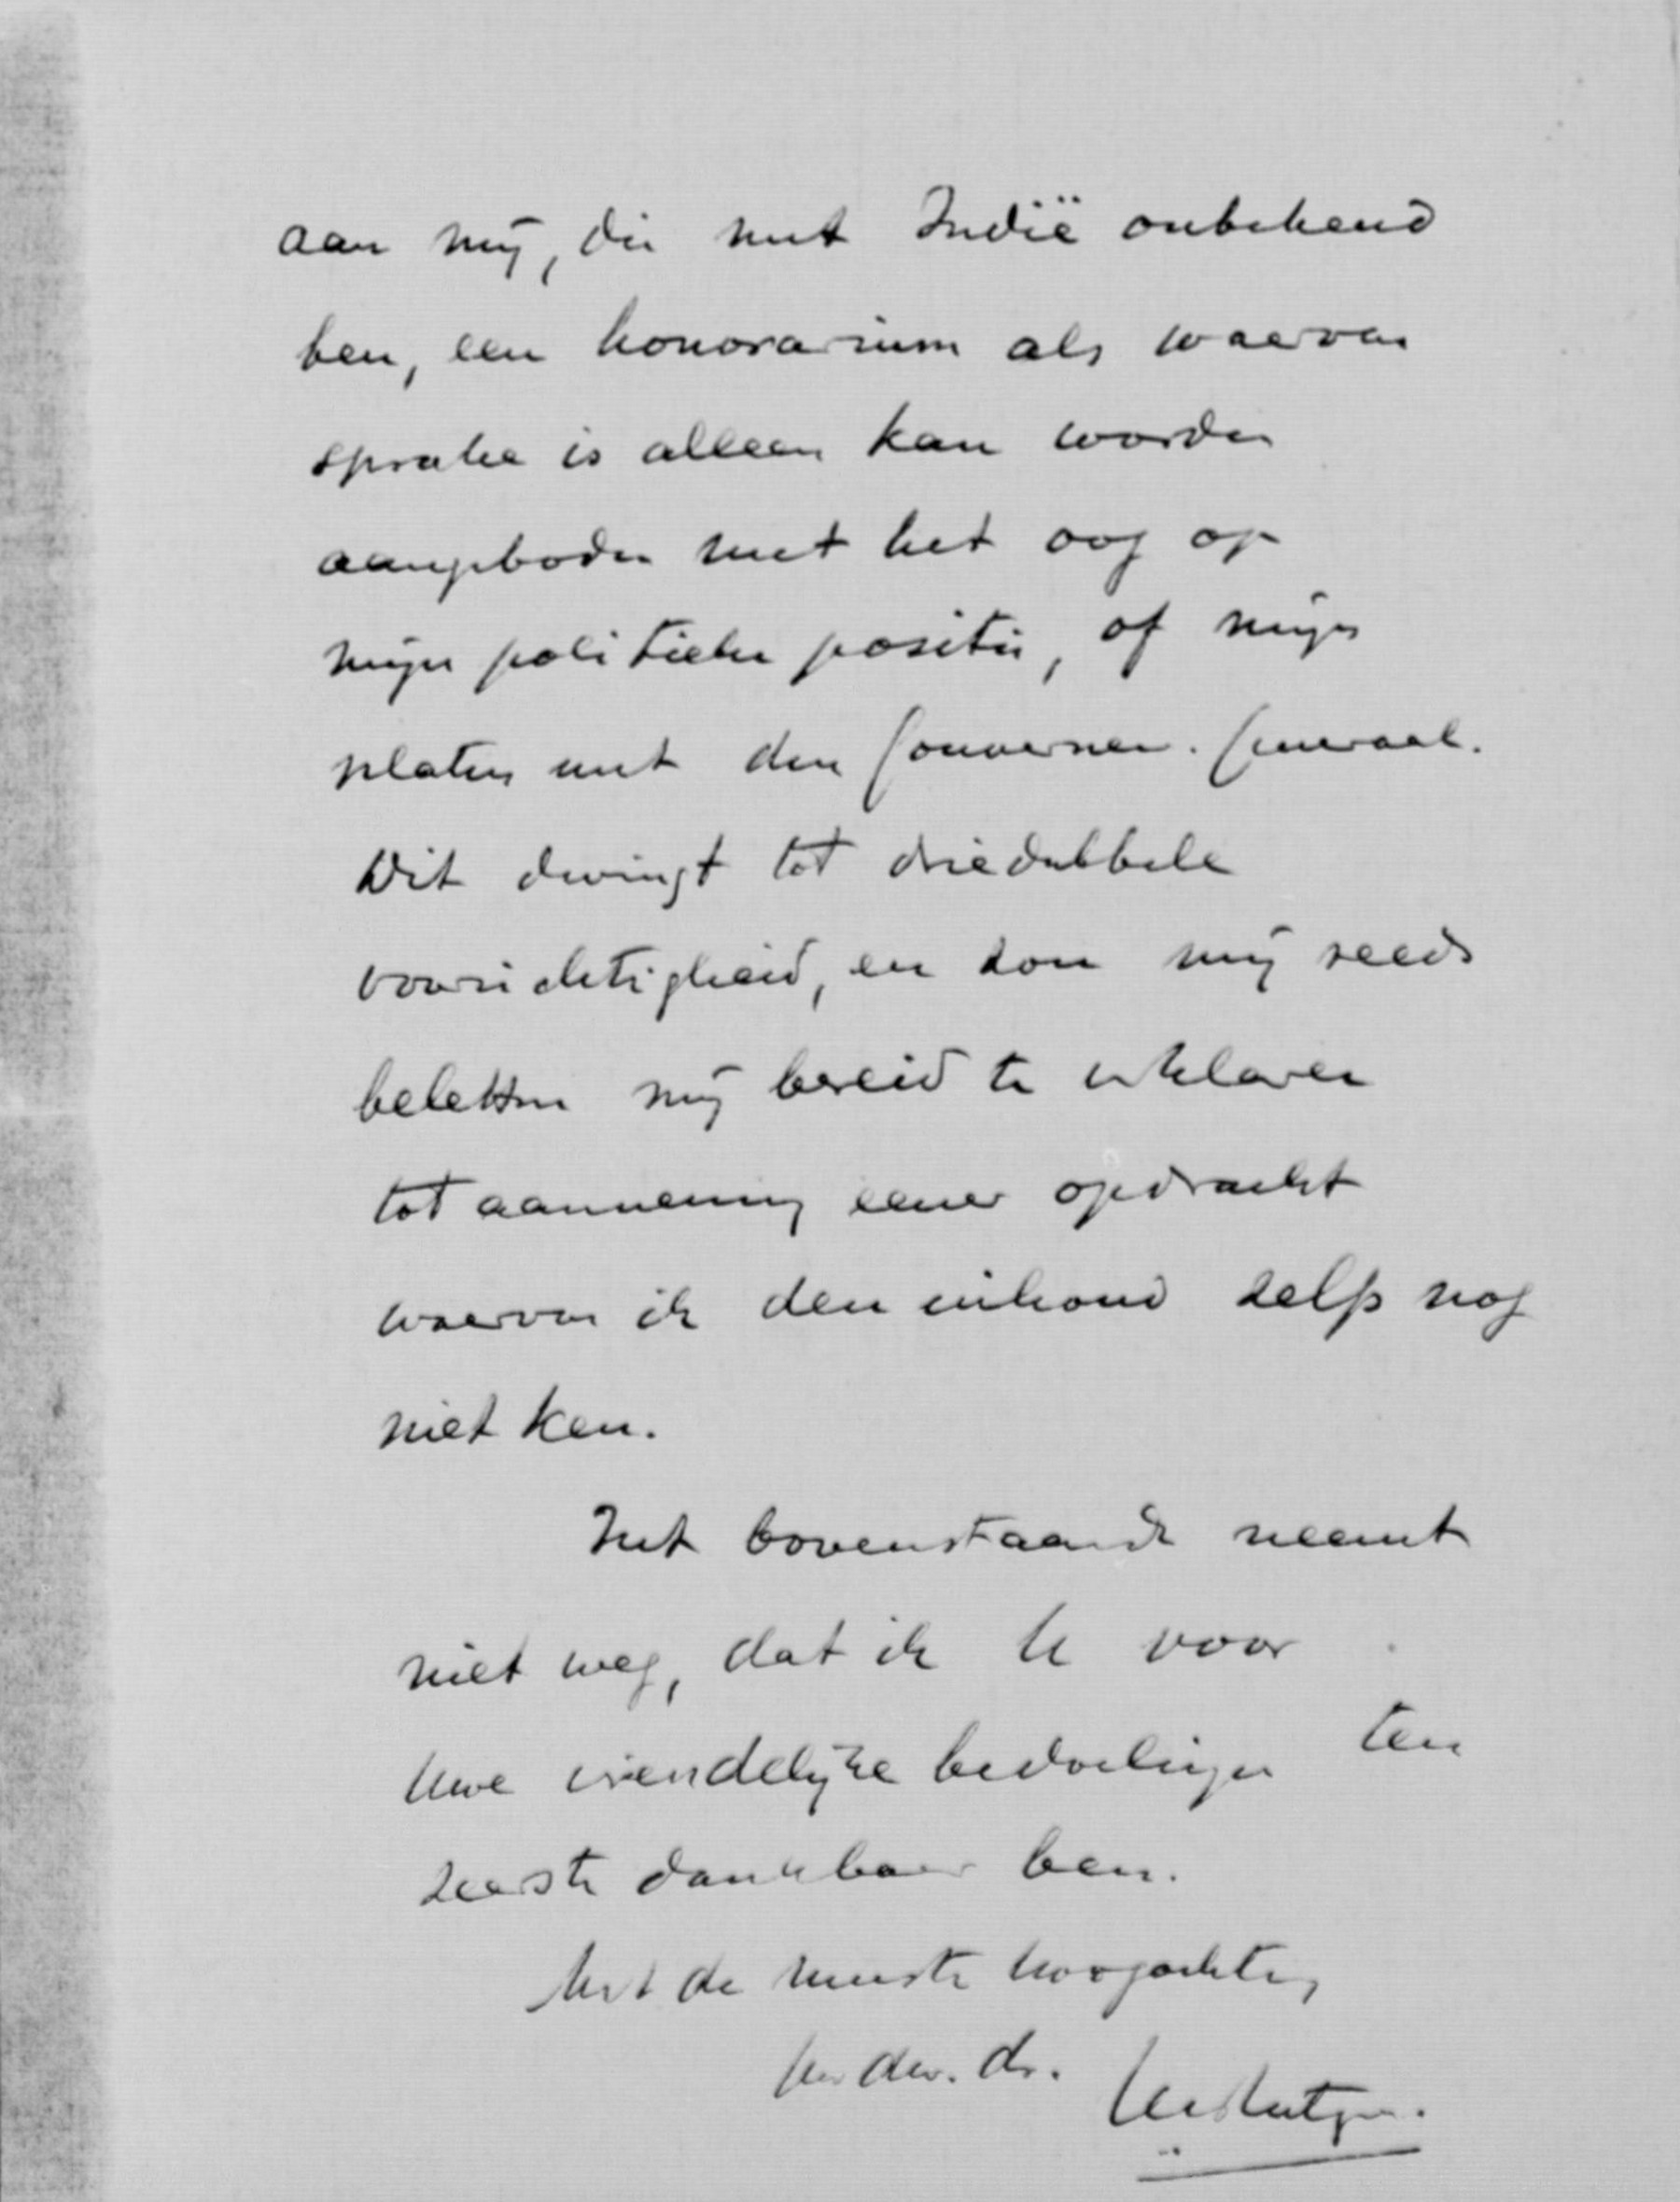 aan mij, die met Indië onbekend
ben, een honorarium als waarvan
sprake is alleen kan worden
aangeboden met het oog op
mijn politieke positie, of mijn
relatie met den Gouverneur-Generaal.
Dit dwingt tot driedubbele
voorzichtigheid, en zou mij reeds
beletten mij bereid te verklaren
tot aanneming eener opdracht
waarvan ik den inhoud zelfs nog
niet ken.
Het bovenstaande neemt
niet weg, dat ik U voor
Uwe vriendelijke bedoelingen ten
zeerste dankbaar ben.
Met de meeste hoogachting
Uw dw. dr.